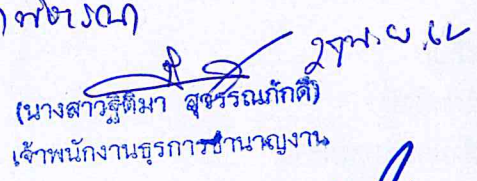 พิจารณา
(นางสาวฐิติมา สุวรรณภักดี)
เจ้าพนักงานธุรการชำนาญงาน